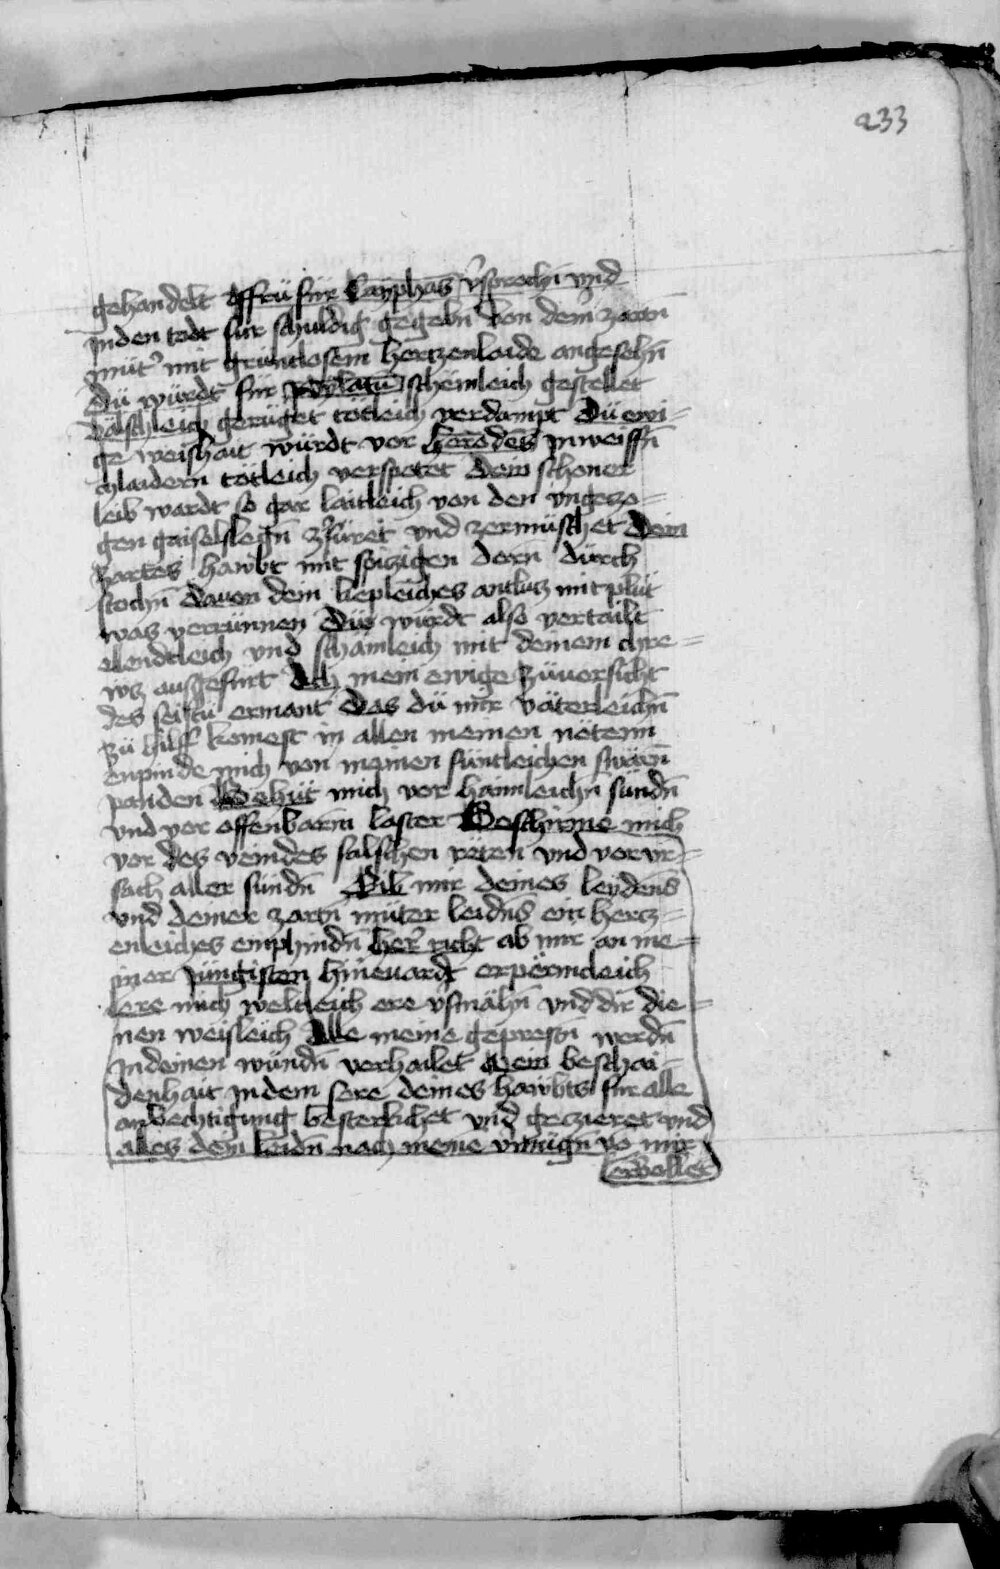 233
gehandelt Offrü für Cayphas v̉sprochn̄ vnd
in den todt für schuldig gegebn̄ von dein̉ zartn̄
müt̉ mit grüntlosem hertzenlaide angesehn̄
Dü würdt für pylatū schemleich gestellet
välschleich gerüget tötleich verdampt Dü ewi=
ge weishait würdt vor herodes in weissn̄
chlaidern tötleich verspotet Dein schoner
leib wardt so gar laitleich von den vngezo=
gen gaiselslegn̄ z̉füret vnd zermüschet Dein
zartes hawbt mit spiczigen dorn̄ dürch
stochn̄ Dauon dein liepleiches antlutz mit plüt
was verrünnen Dü würdt also vertailt
ellendtleich vnd schämleich mit deinem chre=
wtz ausgefürt Ach mein ewige züuersicht
des seistü ermant Das dü mir väterleichn̄
zü hilff komest in allen meinen nötenn
enpinde mich von meinen süntleichen swärn̄
panden Behüt mich vor haimleichn̄ sündn̄
vnd vor offenbarm laster Beschirme mich
vor des veindes falschen räten vnd vor vr=
sach aller sündn̄ Gib mir deines leydens
vnd deiner zartn̄ müter leidn̄s ein hertz=
enleiches emphindn̄ her̉ richt ab mir an me=
iner jüngisten hineuardt erpermcleich
lere mich weltleich ere v̉smähn̄ vnd dir die=
nen weisleich Alle meine geprestn̄ werdn̄
in deinen wündn̄ verhailet Mein beschai
denhait in dem sere deines hawbts für alle
anvechtigung besterkchet vnd geczieret vnd
alles dein leidn̄ nach meine v̉mügn̄ vō mir
ervollet